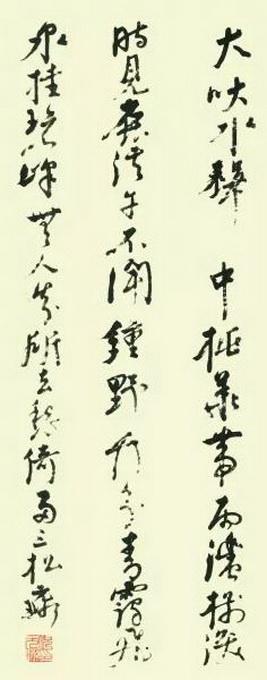 犬吠水聲中桃花帶雨濃樹深
時見鹿溪午不聞鍾野竹分青靄飛
泉挂碧峰無人知所去愁倚兩三松